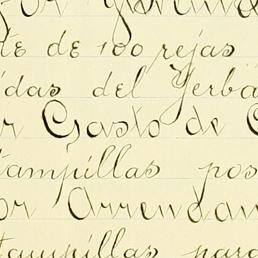 or
te de 100 rejas
idas del Yerba
r Gasto de C
tampillas pos
or Arrendam
tampillas para